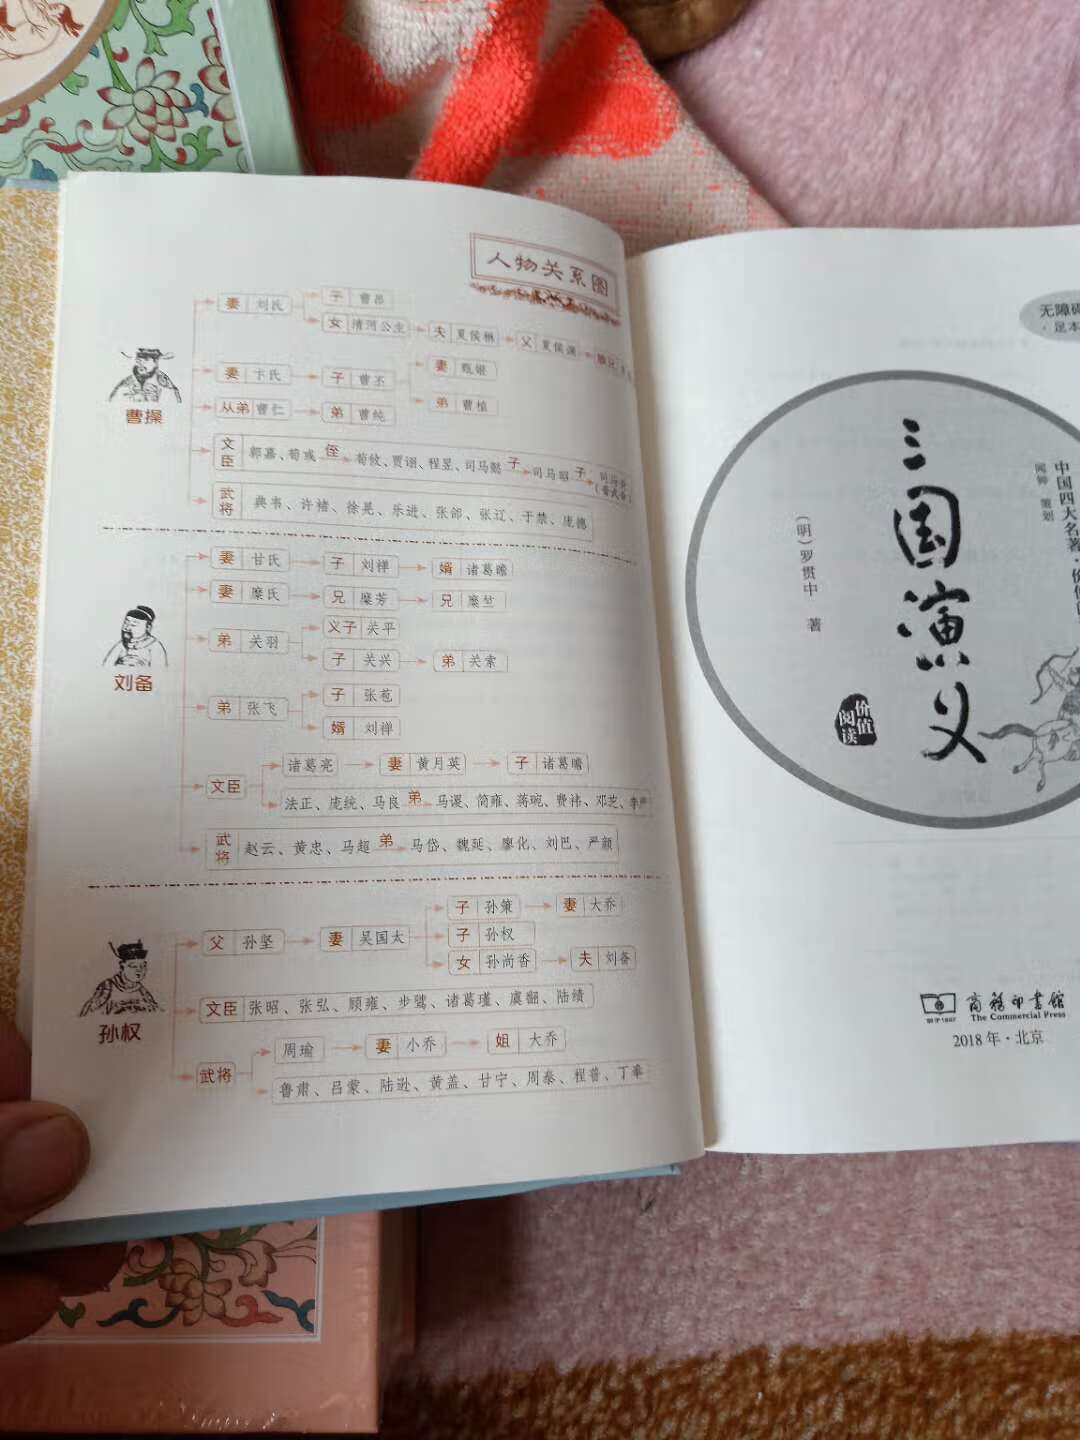 人物关系图
妻 刘氏
子 曹昂
女 清河公主 夫 夏侯楙 父 夏侯渊
曹操
妻 卞氏 子 曹丕
妻 甄姬
弟 曹植
从弟 曹仁 弟 曹纯
文臣 郭嘉、荀彧 侄 荀攸、贾诩、程昱、司马懿 子 司马昭 子
武将 典韦、许褚、徐晃、乐进、张郃、张辽、于禁、庞德
刘备
妻 甘氏 子 刘禅 婿 诸葛瞻
妻 糜氏 兄 糜芳 兄 糜竺
弟 关羽
义子 关平
子 关兴 弟 关索
弟 张飞
子 张苞
婿 刘禅
文臣
诸葛亮 妻 黄月英 子 诸葛瞻
法正、庞统、马良 弟 马谡、简雍、蒋琬、费祎、邓芝、李严
武将 赵云、黄忠、马超 弟 马岱、魏延、廖化、刘巴、严颜
孙权
父 孙坚 妻 吴国太
子 孙策 妻 大乔
子 孙权
女 孙尚香 夫 刘备
文臣 张昭、张弘、顾雍、步骘、诸葛瑾、虞翻、陆绩
武将
周瑜 妻 小乔 姐 大乔
鲁肃、吕蒙、陆逊、黄盖、甘宁、周泰、程普、丁奉
无障
·足本
中国四大名著·价值
闻钟 策划
三国演义
(明)罗贯中 著
价值阅读
商务印书馆
The Commercial Press
2018年·北京